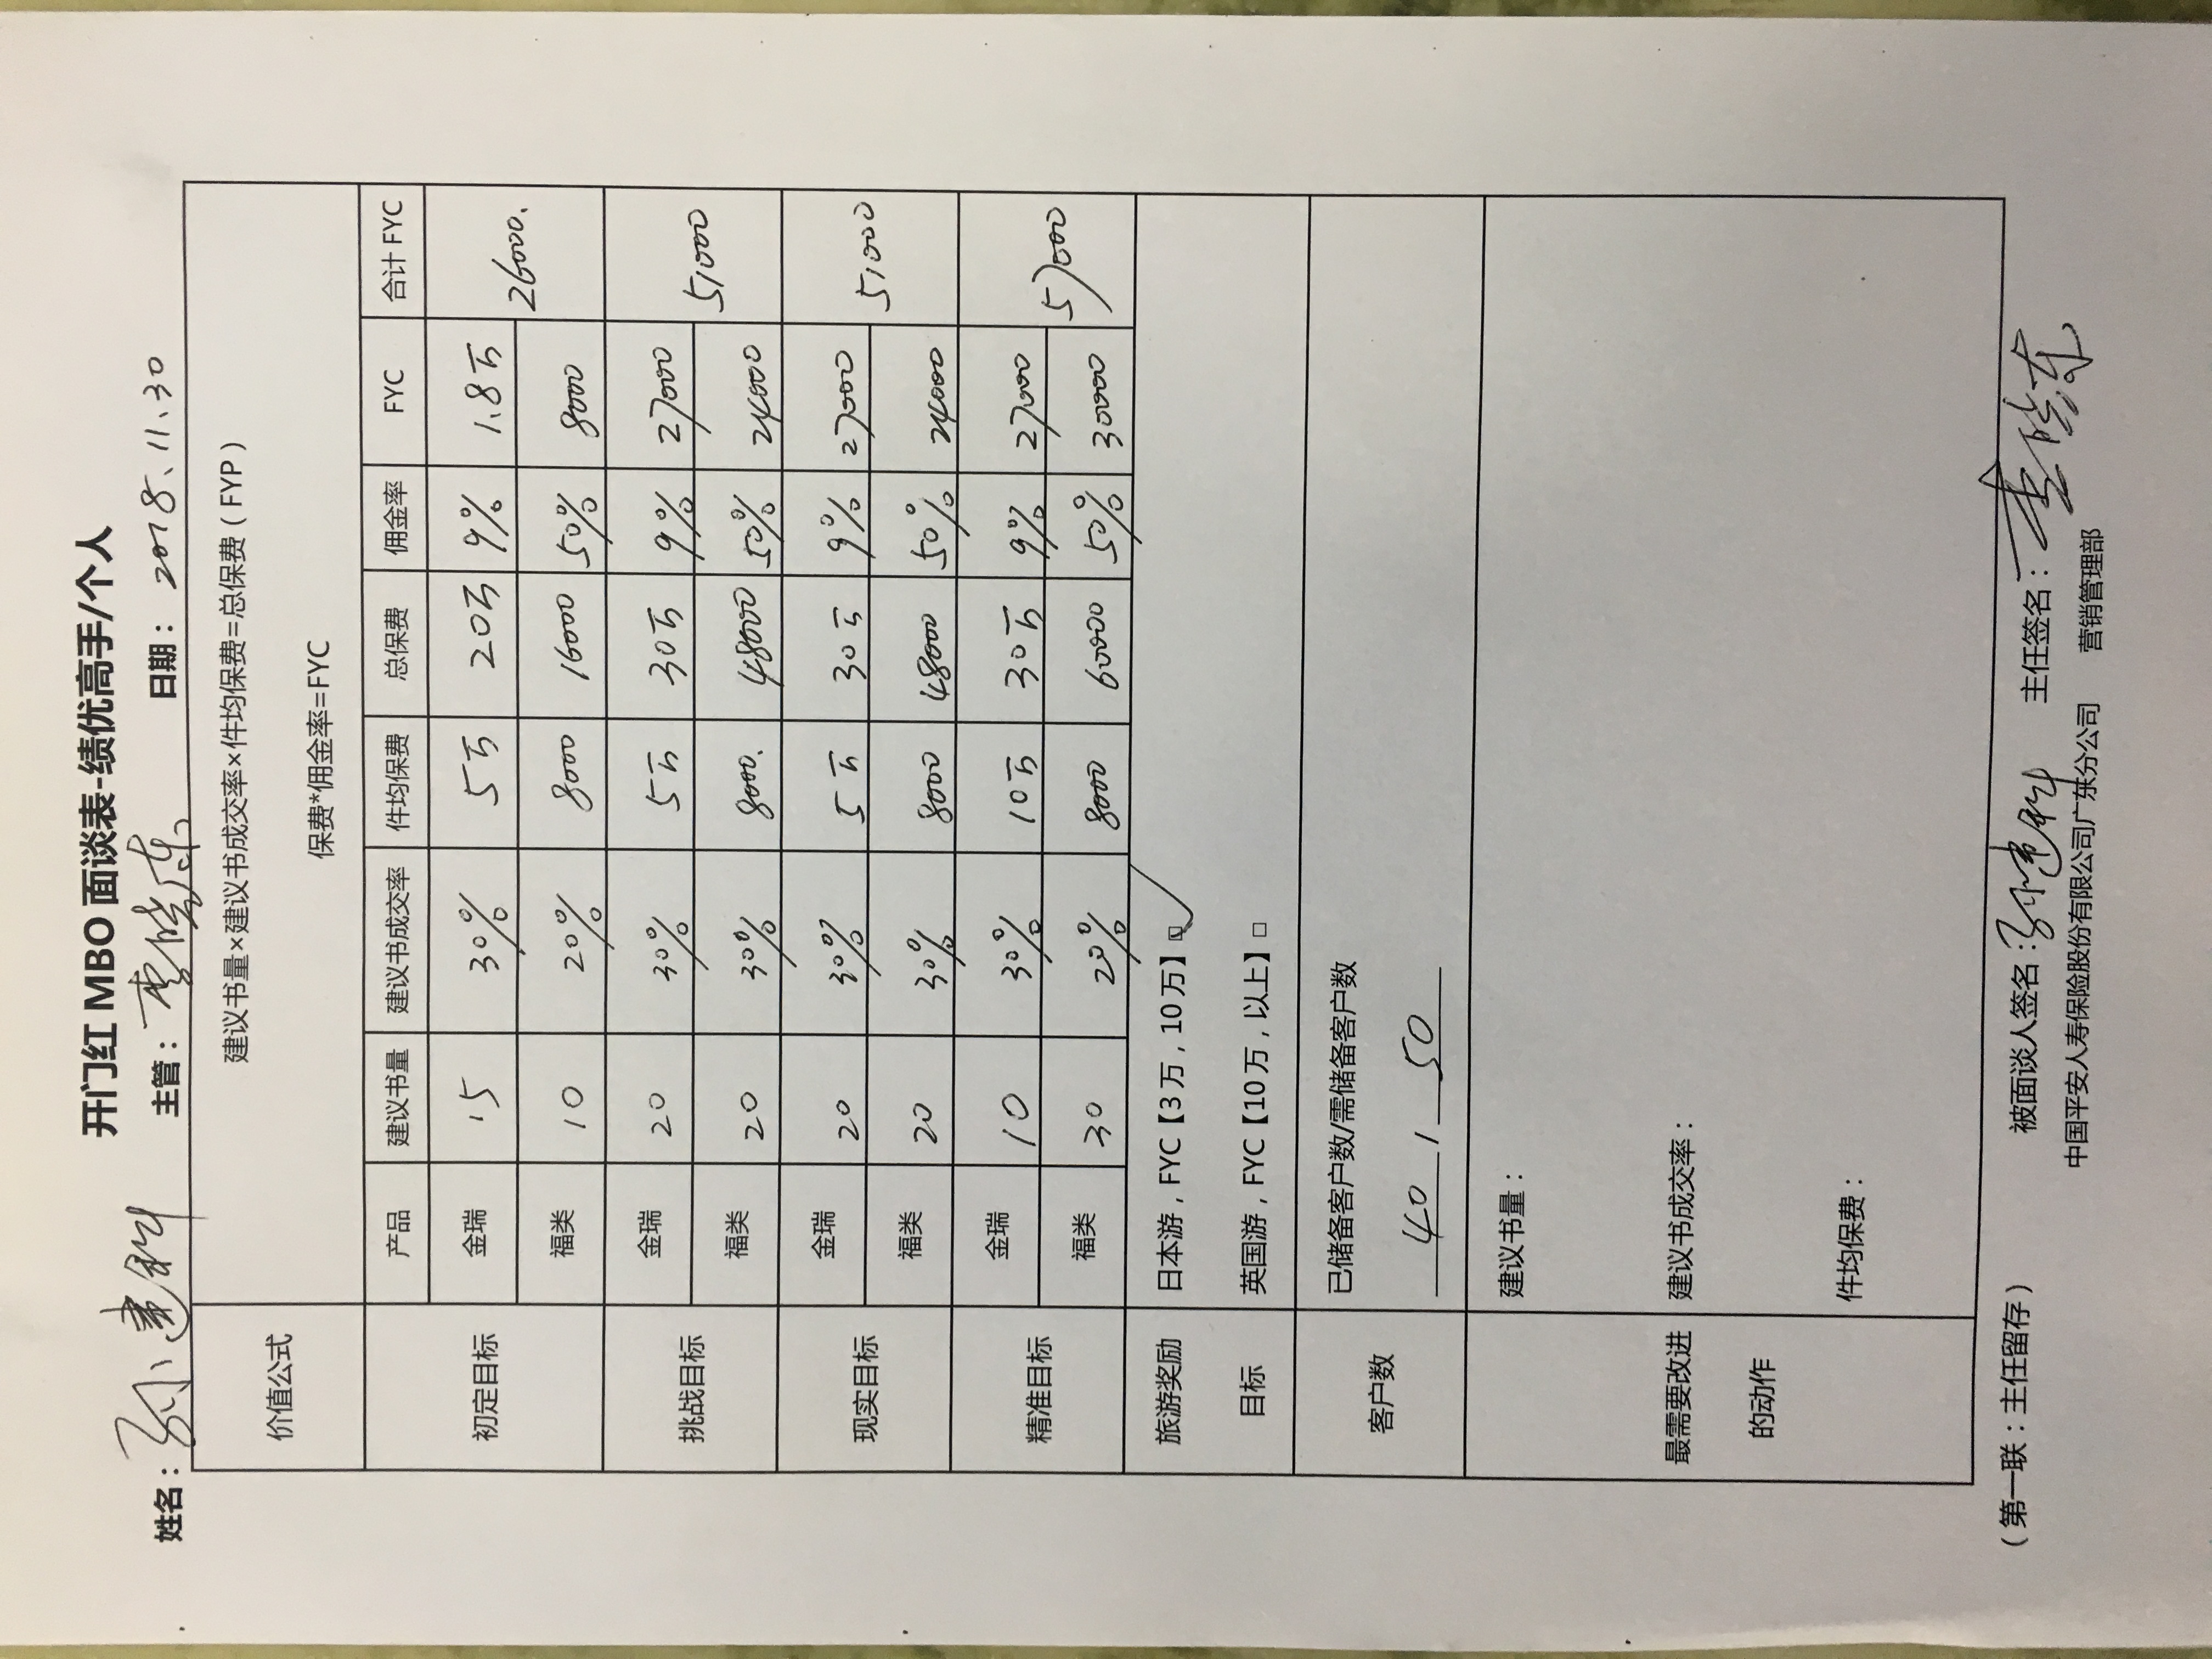 开门红 MBO 面谈表-绩优高手/个人
姓名：孙建科 主管：李晓东 日期：2018.11.30
价值公式 建议书量×建议书成交率×件均保费=总保费（FYP）
保费*佣金率=FYC
产品 建议书量 建议书成交率 件均保费 总保费 佣金率 FYC 合计 FYC
初定目标 金瑞 15 30% 5万 20万 9% 1.8万 26000.
福类 10 20% 8000 16000 50% 8000
挑战目标 金瑞 20 30% 5万 30万 9% 27000 51000
福类 20 30% 8000. 48000 50% 24000
现实目标 金瑞 20 30% 5万 30万 9% 27000 51000
福类 20 30% 8000 48000 50% 24000
精准目标 金瑞 10 30% 10万 30万 9% 27000 57000
福类 30 20% 8000 60000 50% 30000
旅游奖励 日本游，FYC【3万，10万】☑
目标 英国游，FYC【10万，以上】□
客户数 已储备客户数/需储备客户数
40 / 50
最需要改进 建议书量：
的动作 建议书成交率：
件均保费：
（第一联：主任留存） 被面谈人签名：孙建科 主任签名：李晓东
中国平安人寿保险股份有限公司广东分公司 营销管理部